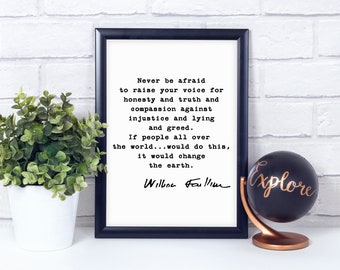 Never be afraid
to raise your voice for
honesty and truth and
compassion against
injustice and lying
and greed.
If people all over
the world...would do this,
it would change
the earth.
William Faulkner
Explore